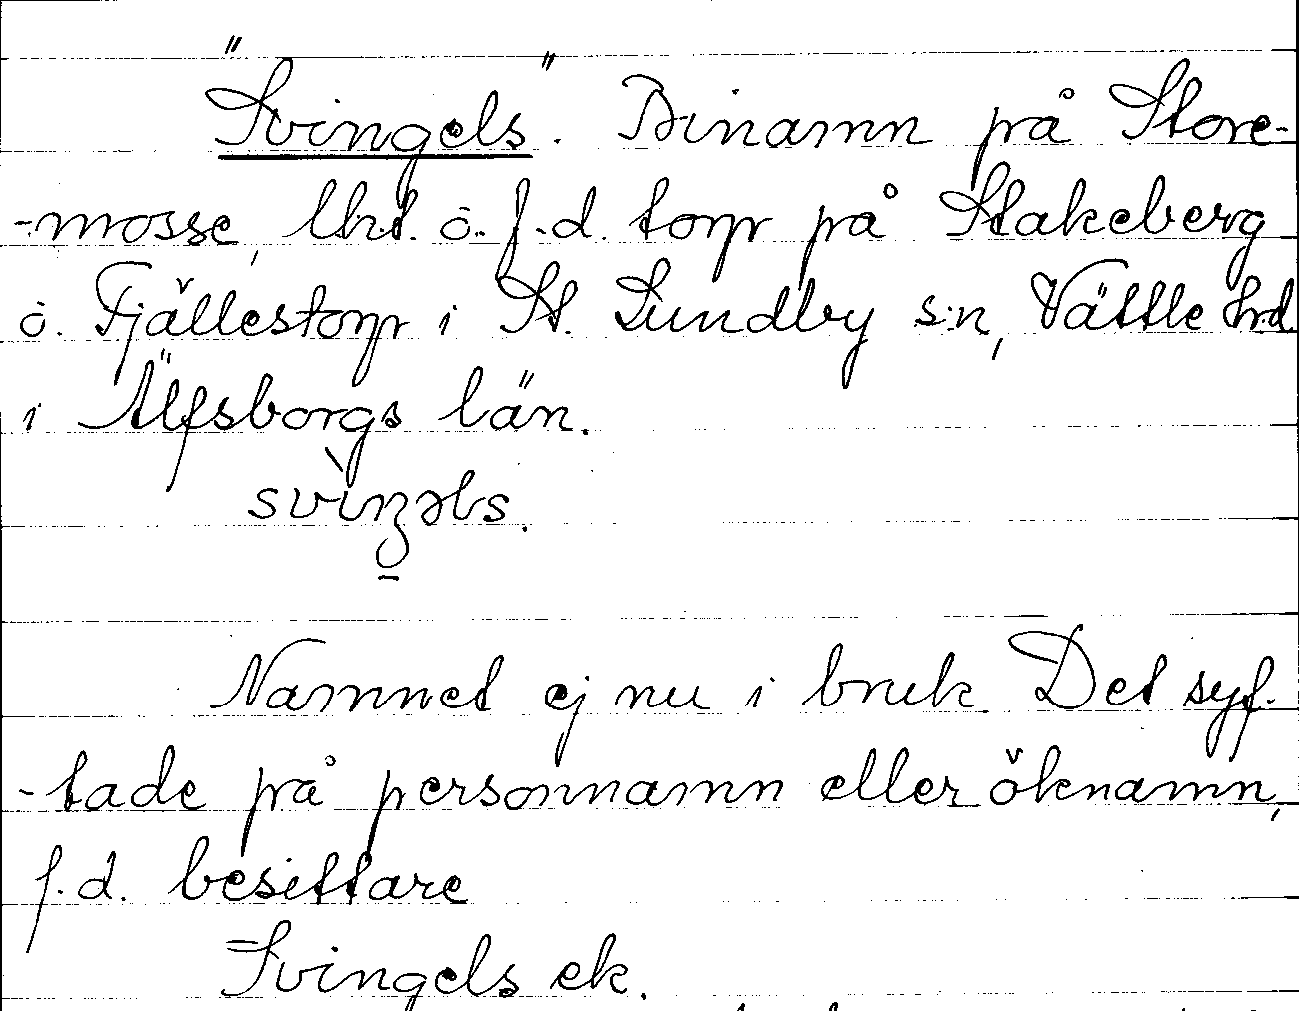 "Svingels". Binamn på Store-
-mosse, lht. ö. f.d. torp på Stakeberg
ö. Fjällestorp i St. Lundby s:n, Vättle hrd
i Älfsborgs län.
svìŋəls.
Namnet ej nu i bruk. Det syf-
-tade på personnamn eller öknamn,
f.d. besittare
Svingels ek.